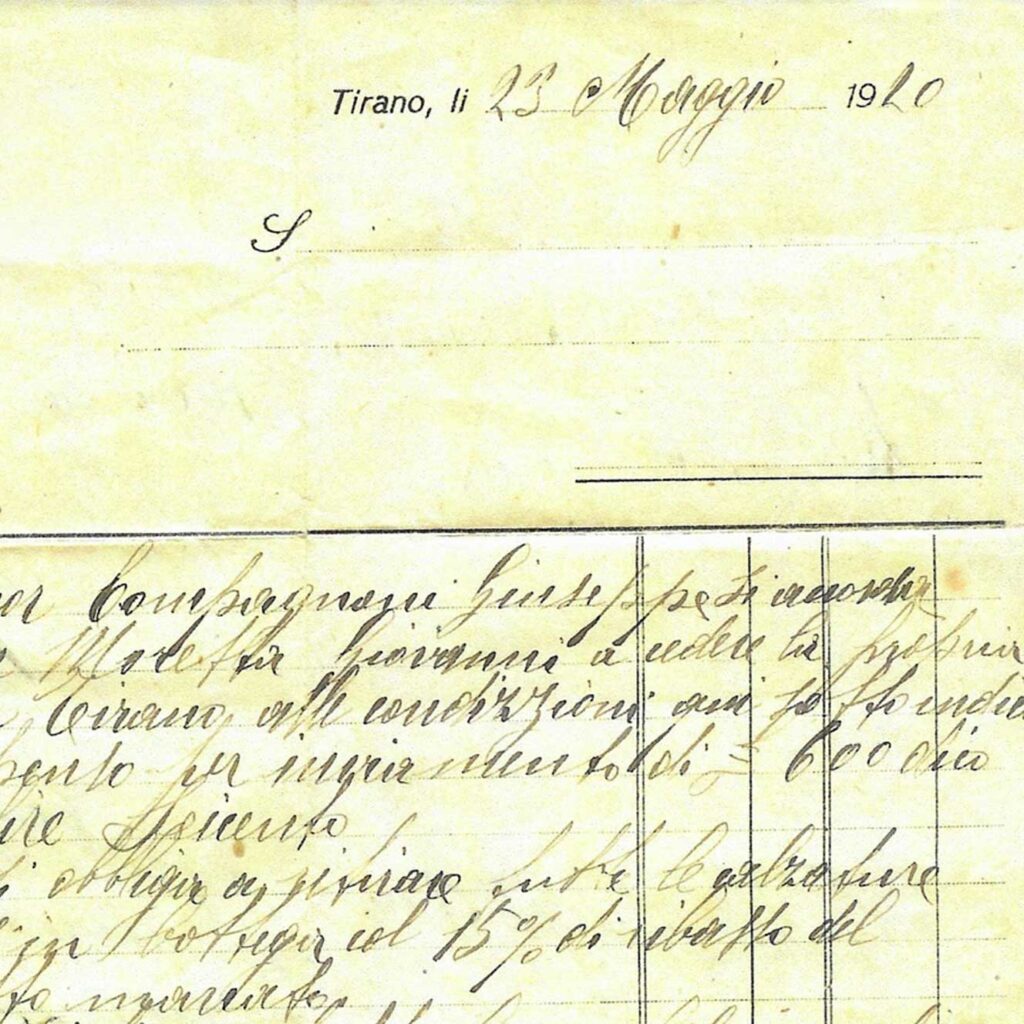 Tirano, li 23 Maggio 1920
S
Compagnoni Giuseppe si accorda
Moretta Giovanni a cedere la propria
Tirano, alle condizzioni qui sotto indic
per inviamento di = 600 dico
lire seicento
si obbliga a ritirare tutte le calzature
in bottega col 15% di ribasso del